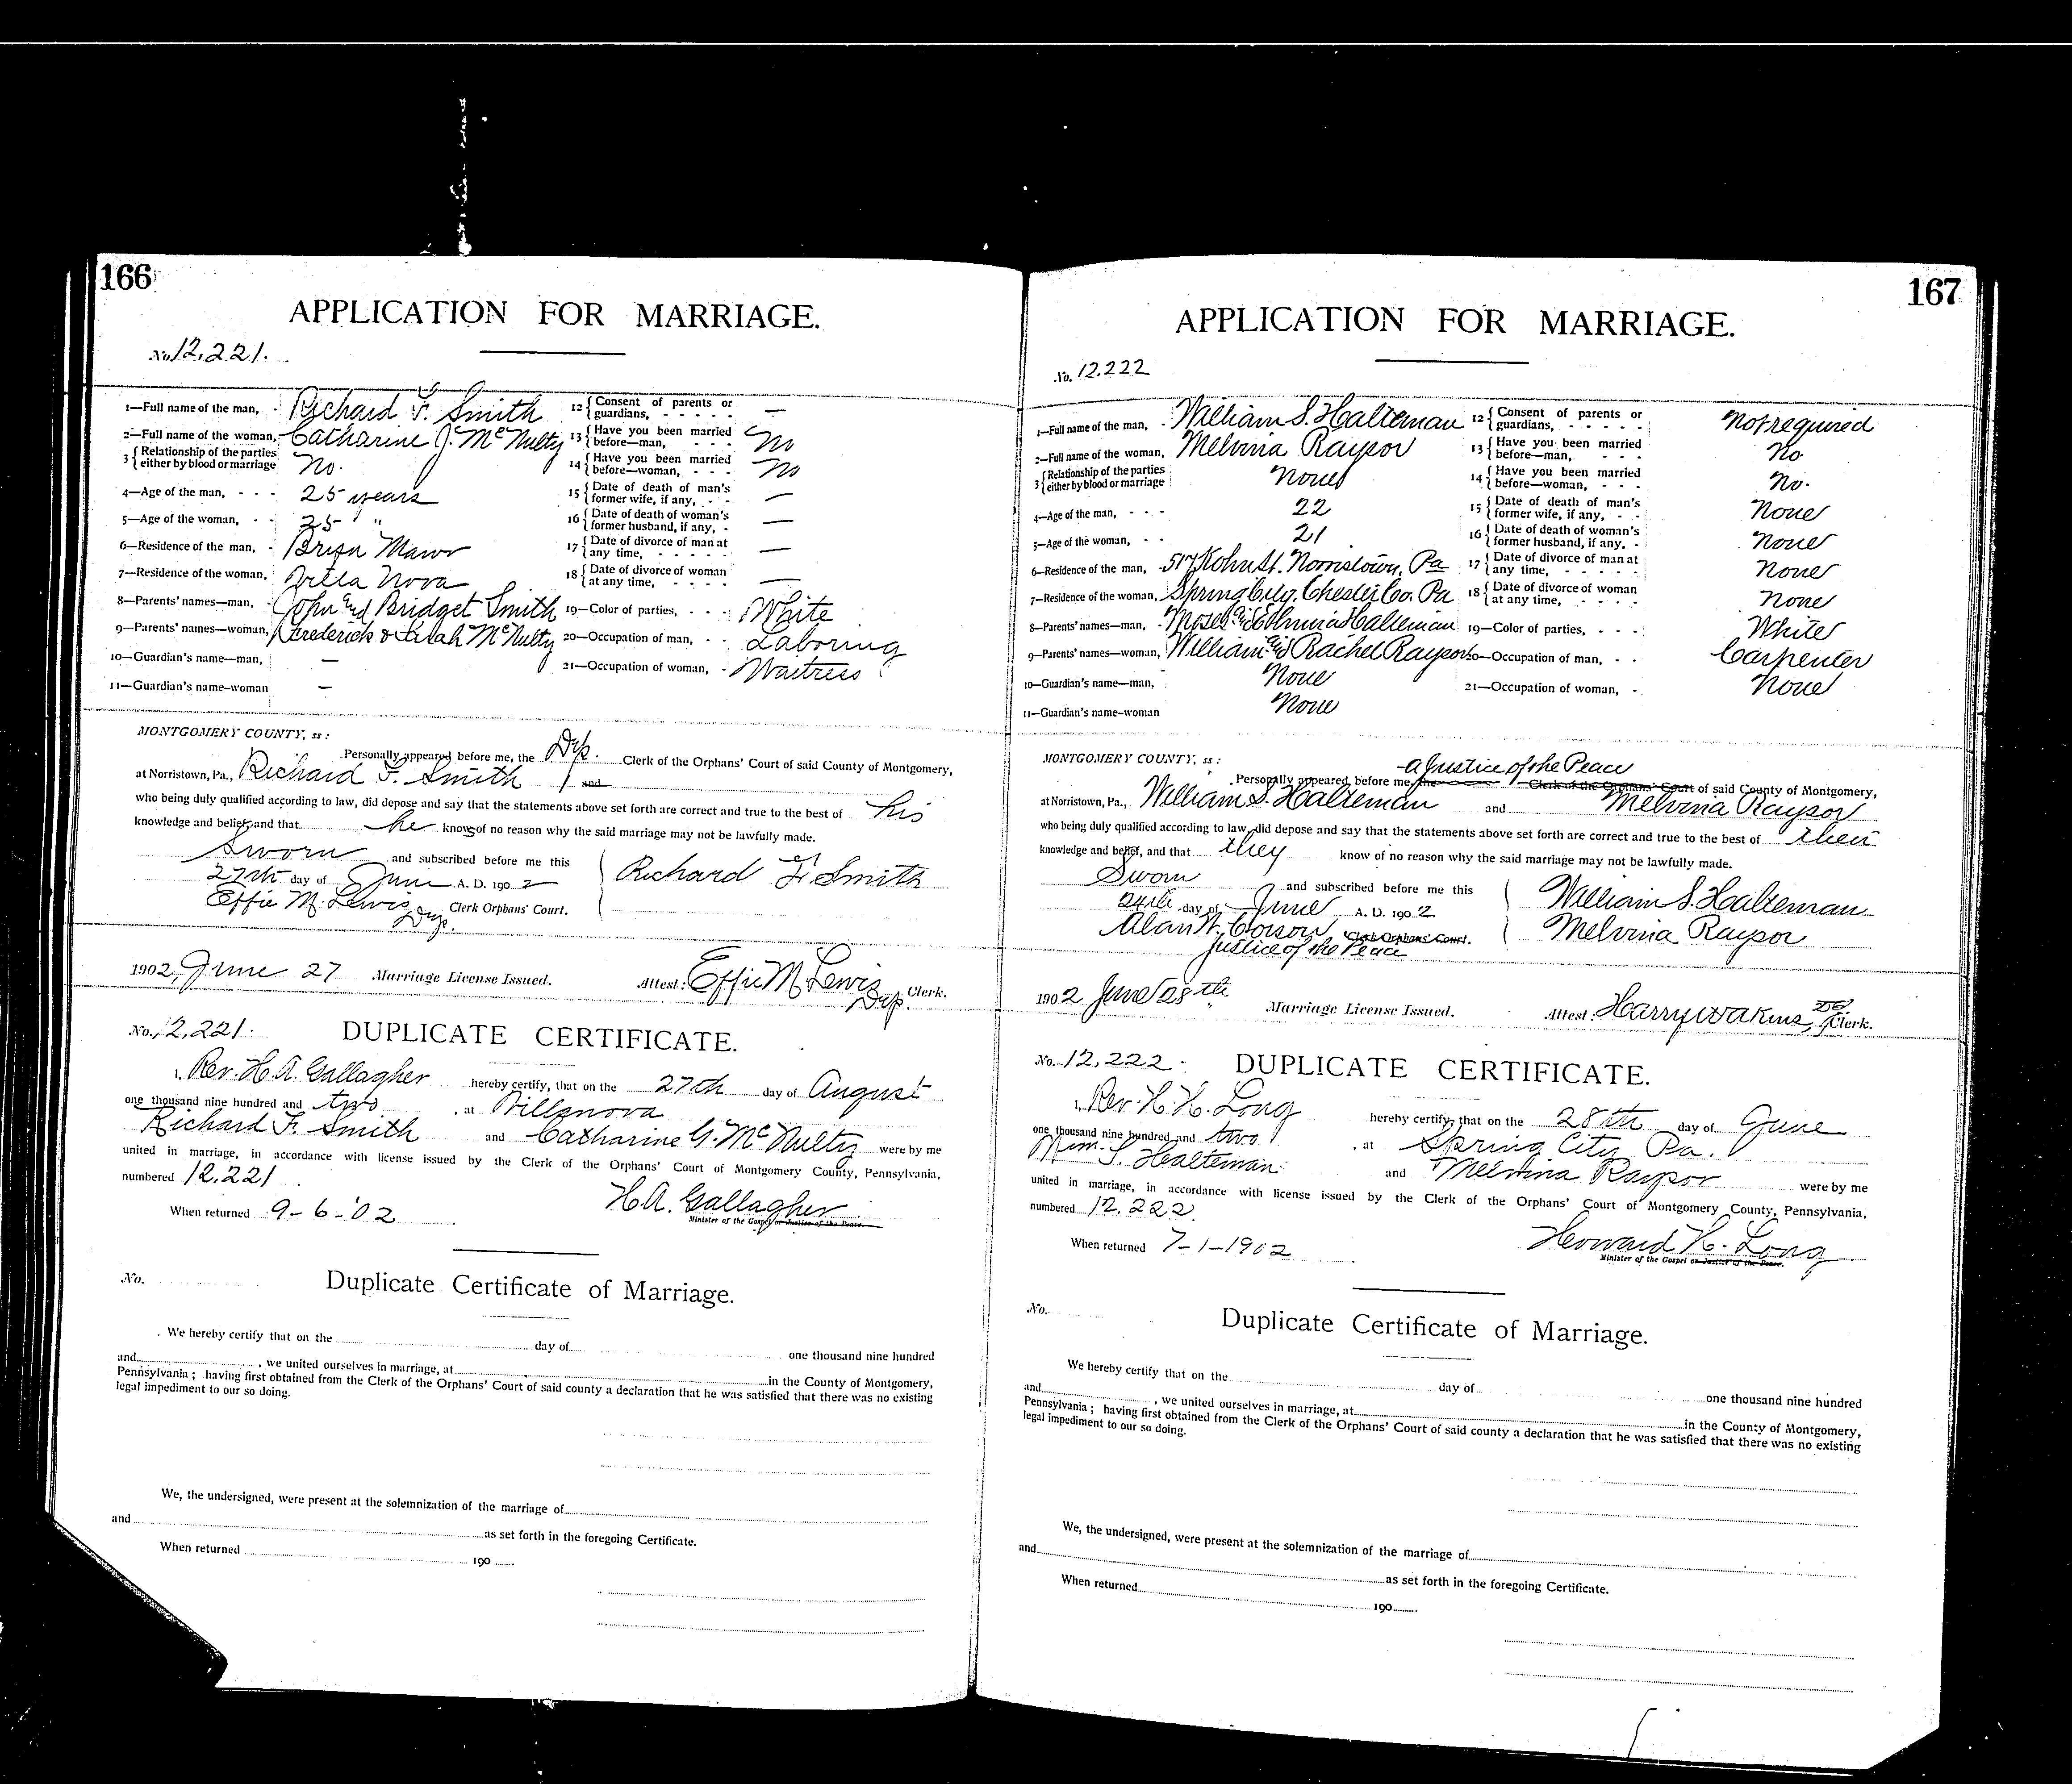 166
APPLICATION FOR MARRIAGE.
No. 12,221.
1—Full name of the man, - Richard F. Smith
2—Full name of the woman, Catharine G. McNulty
3 { Relationship of the parties either by blood or marriage No.
4—Age of the man, - - - 25 years
5—Age of the woman, - - 25 "
6—Residence of the man, - Bryn Mawr
7—Residence of the woman, Villa Nova
8—Parents' names—man, - John and Bridget Smith
9—Parents' names—woman, Frederick & McNulty
10—Guardian's name—man, —
11—Guardian's name–woman —
12 { Consent of parents or guardians, - - - - - —
13 { Have you been married before—man, - - - No
14 { Have you been married before—woman, - - - No
15 { Date of death of man's former wife, if any, - - —
16 { Date of death of woman's former husband, if any, - —
17 { Date of divorce of man at any time, - - - - - —
18 { Date of divorce of woman at any time, - - - - —
19—Color of parties, - - - White
20—Occupation of man, - - Laboring
21—Occupation of woman, - Waitress
MONTGOMERY COUNTY, ss:
Personally appeared before me, the Dep. Clerk of the Orphans' Court of said County of Montgomery,
at Norristown, Pa., Richard F. Smith and
who being duly qualified according to law, did depose and say that the statements above set forth are correct and true to the best of his
knowledge and belief, and that he knows of no reason why the said marriage may not be lawfully made.
Sworn and subscribed before me this
27th day of June A. D. 1902
Effie M. Lewis Dep. Clerk Orphans' Court.
Richard F. Smith
1902, June 27 Marriage License Issued. Attest: Effie M Lewis Dep. Clerk.
No. 12,221. DUPLICATE CERTIFICATE.
I, Rev. H. A. Gallagher hereby certify, that on the 27th day of August
one thousand nine hundred and two, at Villanova
Richard F. Smith and Catharine G. McNulty were by me
united in marriage, in accordance with license issued by the Clerk of the Orphans' Court of Montgomery County, Pennsylvania,
numbered 12,221
H.A. Gallagher
Minister of the Gospel or Justice of the Peace.
When returned 9-6-'02
No. Duplicate Certificate of Marriage.
We hereby certify that on the day of one thousand nine hundred
and , we united ourselves in marriage, at in the County of Montgomery,
Pennsylvania; having first obtained from the Clerk of the Orphans' Court of said county a declaration that he was satisfied that there was no existing
legal impediment to our so doing.
We, the undersigned, were present at the solemnization of the marriage of
and as set forth in the foregoing Certificate.
When returned 190
167
APPLICATION FOR MARRIAGE.
No. 12.222
1—Full name of the man, - William S. Halteman
2—Full name of the woman, Melvina Raysor
3 { Relationship of the parties either by blood or marriage None
4—Age of the man, - - - 22
5—Age of the woman, - - 21
6—Residence of the man, - 517 Kohn St. Norristown, Pa
7—Residence of the woman, Spring City, Chester Co. Pa
8—Parents' names—man, - Moses and Halteman
9—Parents' names—woman, William and Rachel Raysor
10—Guardian's name—man, None
11—Guardian's name–woman None
12 { Consent of parents or guardians, - - - - - Not required
13 { Have you been married before—man, - - - No
14 { Have you been married before—woman, - - - No.
15 { Date of death of man's former wife, if any, - - None
16 { Date of death of woman's former husband, if any, - None
17 { Date of divorce of man at any time, - - - - - None
18 { Date of divorce of woman at any time, - - - - None
19—Color of parties, - - - White
20—Occupation of man, - - Carpenter
21—Occupation of woman, - None
MONTGOMERY COUNTY, ss:
a Justice of the Peace
Personally appeared before me, the Clerk of the Orphans' Court of said County of Montgomery,
at Norristown, Pa., William S. Halteman and Melvina Raysor
who being duly qualified according to law, did depose and say that the statements above set forth are correct and true to the best of their
knowledge and belief, and that they know of no reason why the said marriage may not be lawfully made.
Sworn and subscribed before me this
24th day of June A. D. 1902
Alan W. Corson Clerk Orphans' Court.
Justice of the Peace
William S. Halteman
Melvina Raysor
1902 June 28th Marriage License Issued. Attest: Clerk.
No. 12,222. DUPLICATE CERTIFICATE.
I, Rev. H. K. Long hereby certify, that on the 28th day of June
one thousand nine hundred and two, at Spring City Pa.
Wm. S. Halteman and Melvina Raysor were by me
united in marriage, in accordance with license issued by the Clerk of the Orphans' Court of Montgomery County, Pennsylvania,
numbered 12,222.
Howard K. Long
Minister of the Gospel or Justice of the Peace.
When returned 7-1-1902
No. Duplicate Certificate of Marriage.
We hereby certify that on the day of one thousand nine hundred
and , we united ourselves in marriage, at in the County of Montgomery,
Pennsylvania; having first obtained from the Clerk of the Orphans' Court of said county a declaration that he was satisfied that there was no existing
legal impediment to our so doing.
We, the undersigned, were present at the solemnization of the marriage of
and as set forth in the foregoing Certificate.
When returned 190